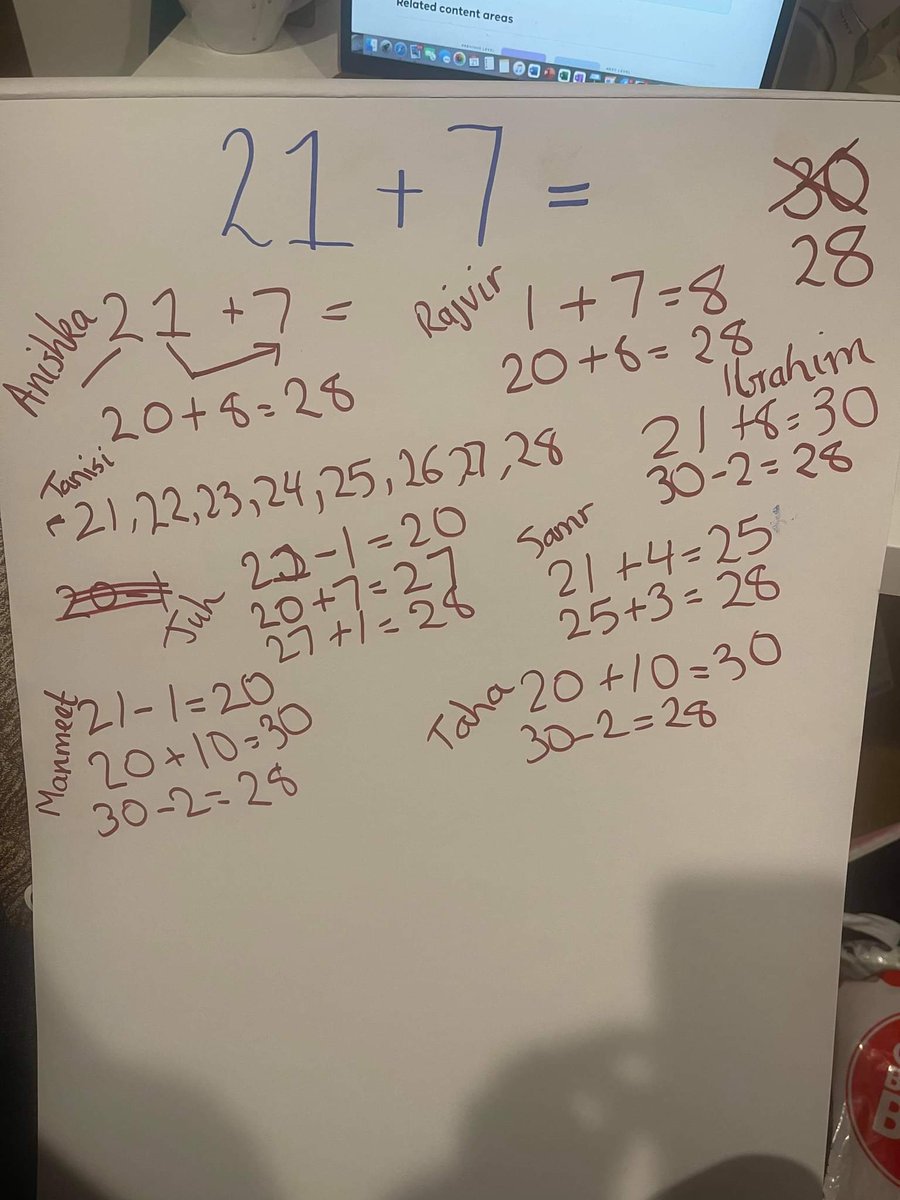 Related content areas
21 + 7 =
30
28
Anishka
21 + 7 =
20 + 8 = 28
Rajvir
1 + 7 = 8
20 + 8 = 28
Ibrahim
21 + 8 = 30
30 - 2 = 28
Tanisi
21, 22, 23, 24, 25, 26, 27, 28
Juh
21 - 1 = 20
20 + 7 = 27
27 + 1 = 28
Samr
21 + 4 = 25
25 + 3 = 28
Manmeet
21 - 1 = 20
20 + 10 = 30
30 - 2 = 28
Taha
20 + 10 = 30
30 - 2 = 28